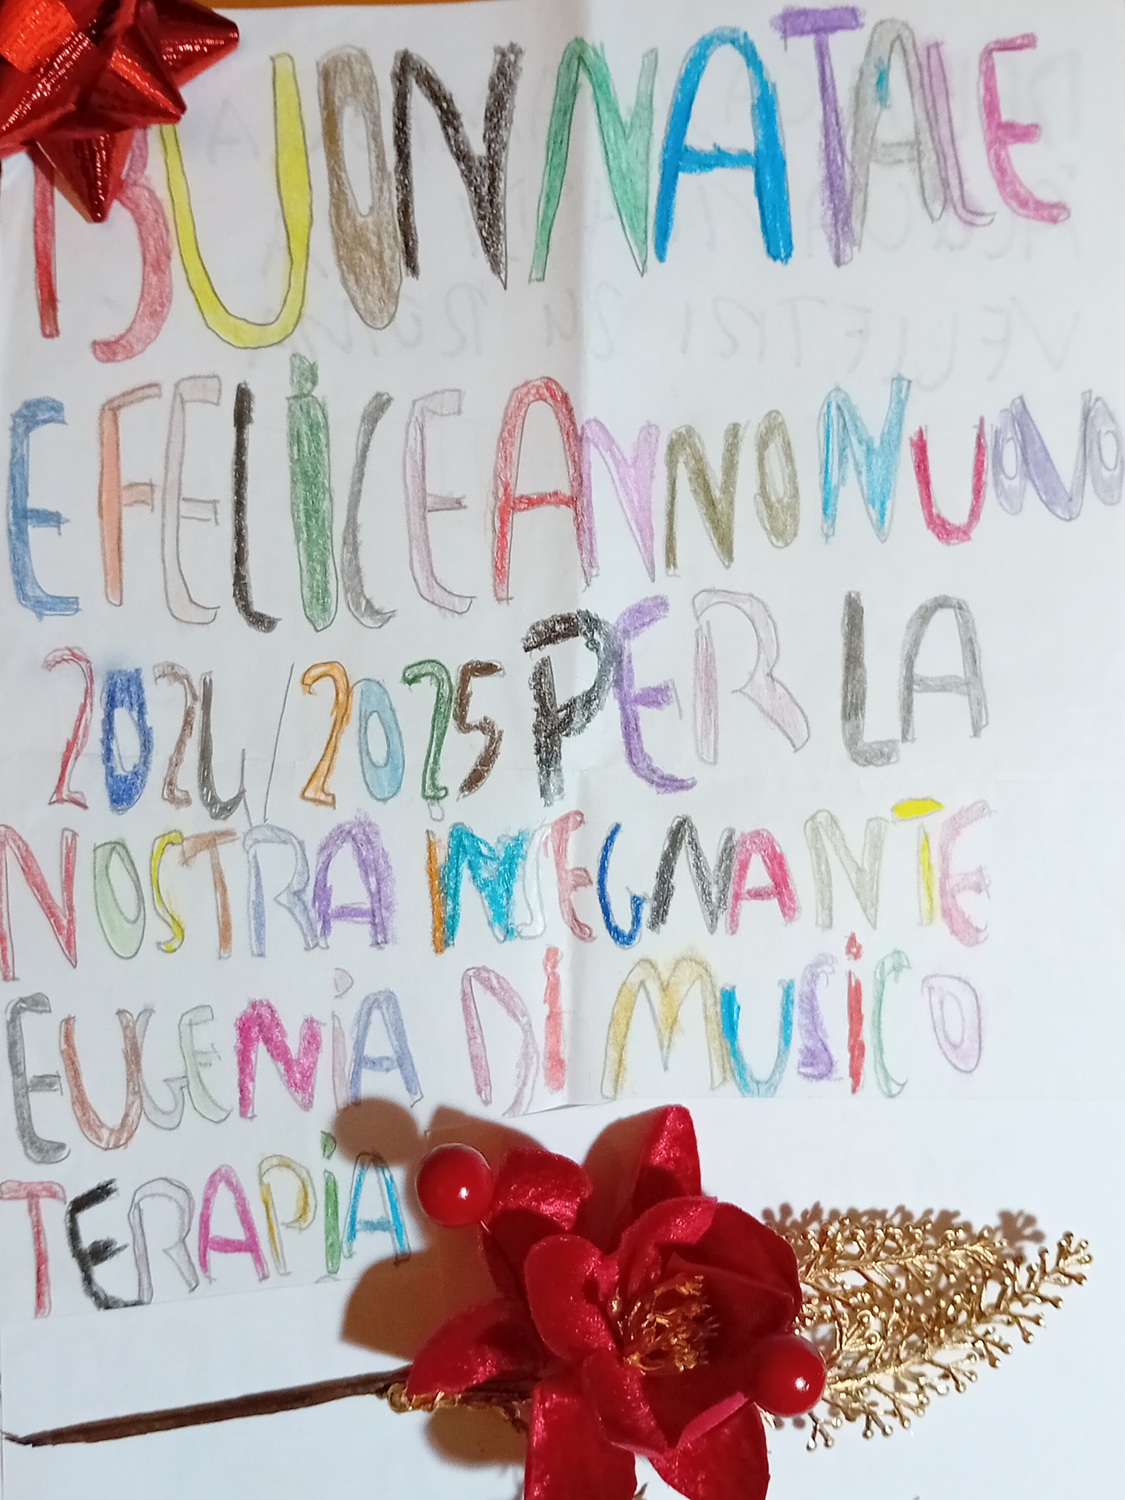 BUON NATALE
E FELICE ANNO NUOVO
2024/2025 PER LA
NOSTRA INSEGNANTE
EUGENIA DI MUSICO
TERAPIA